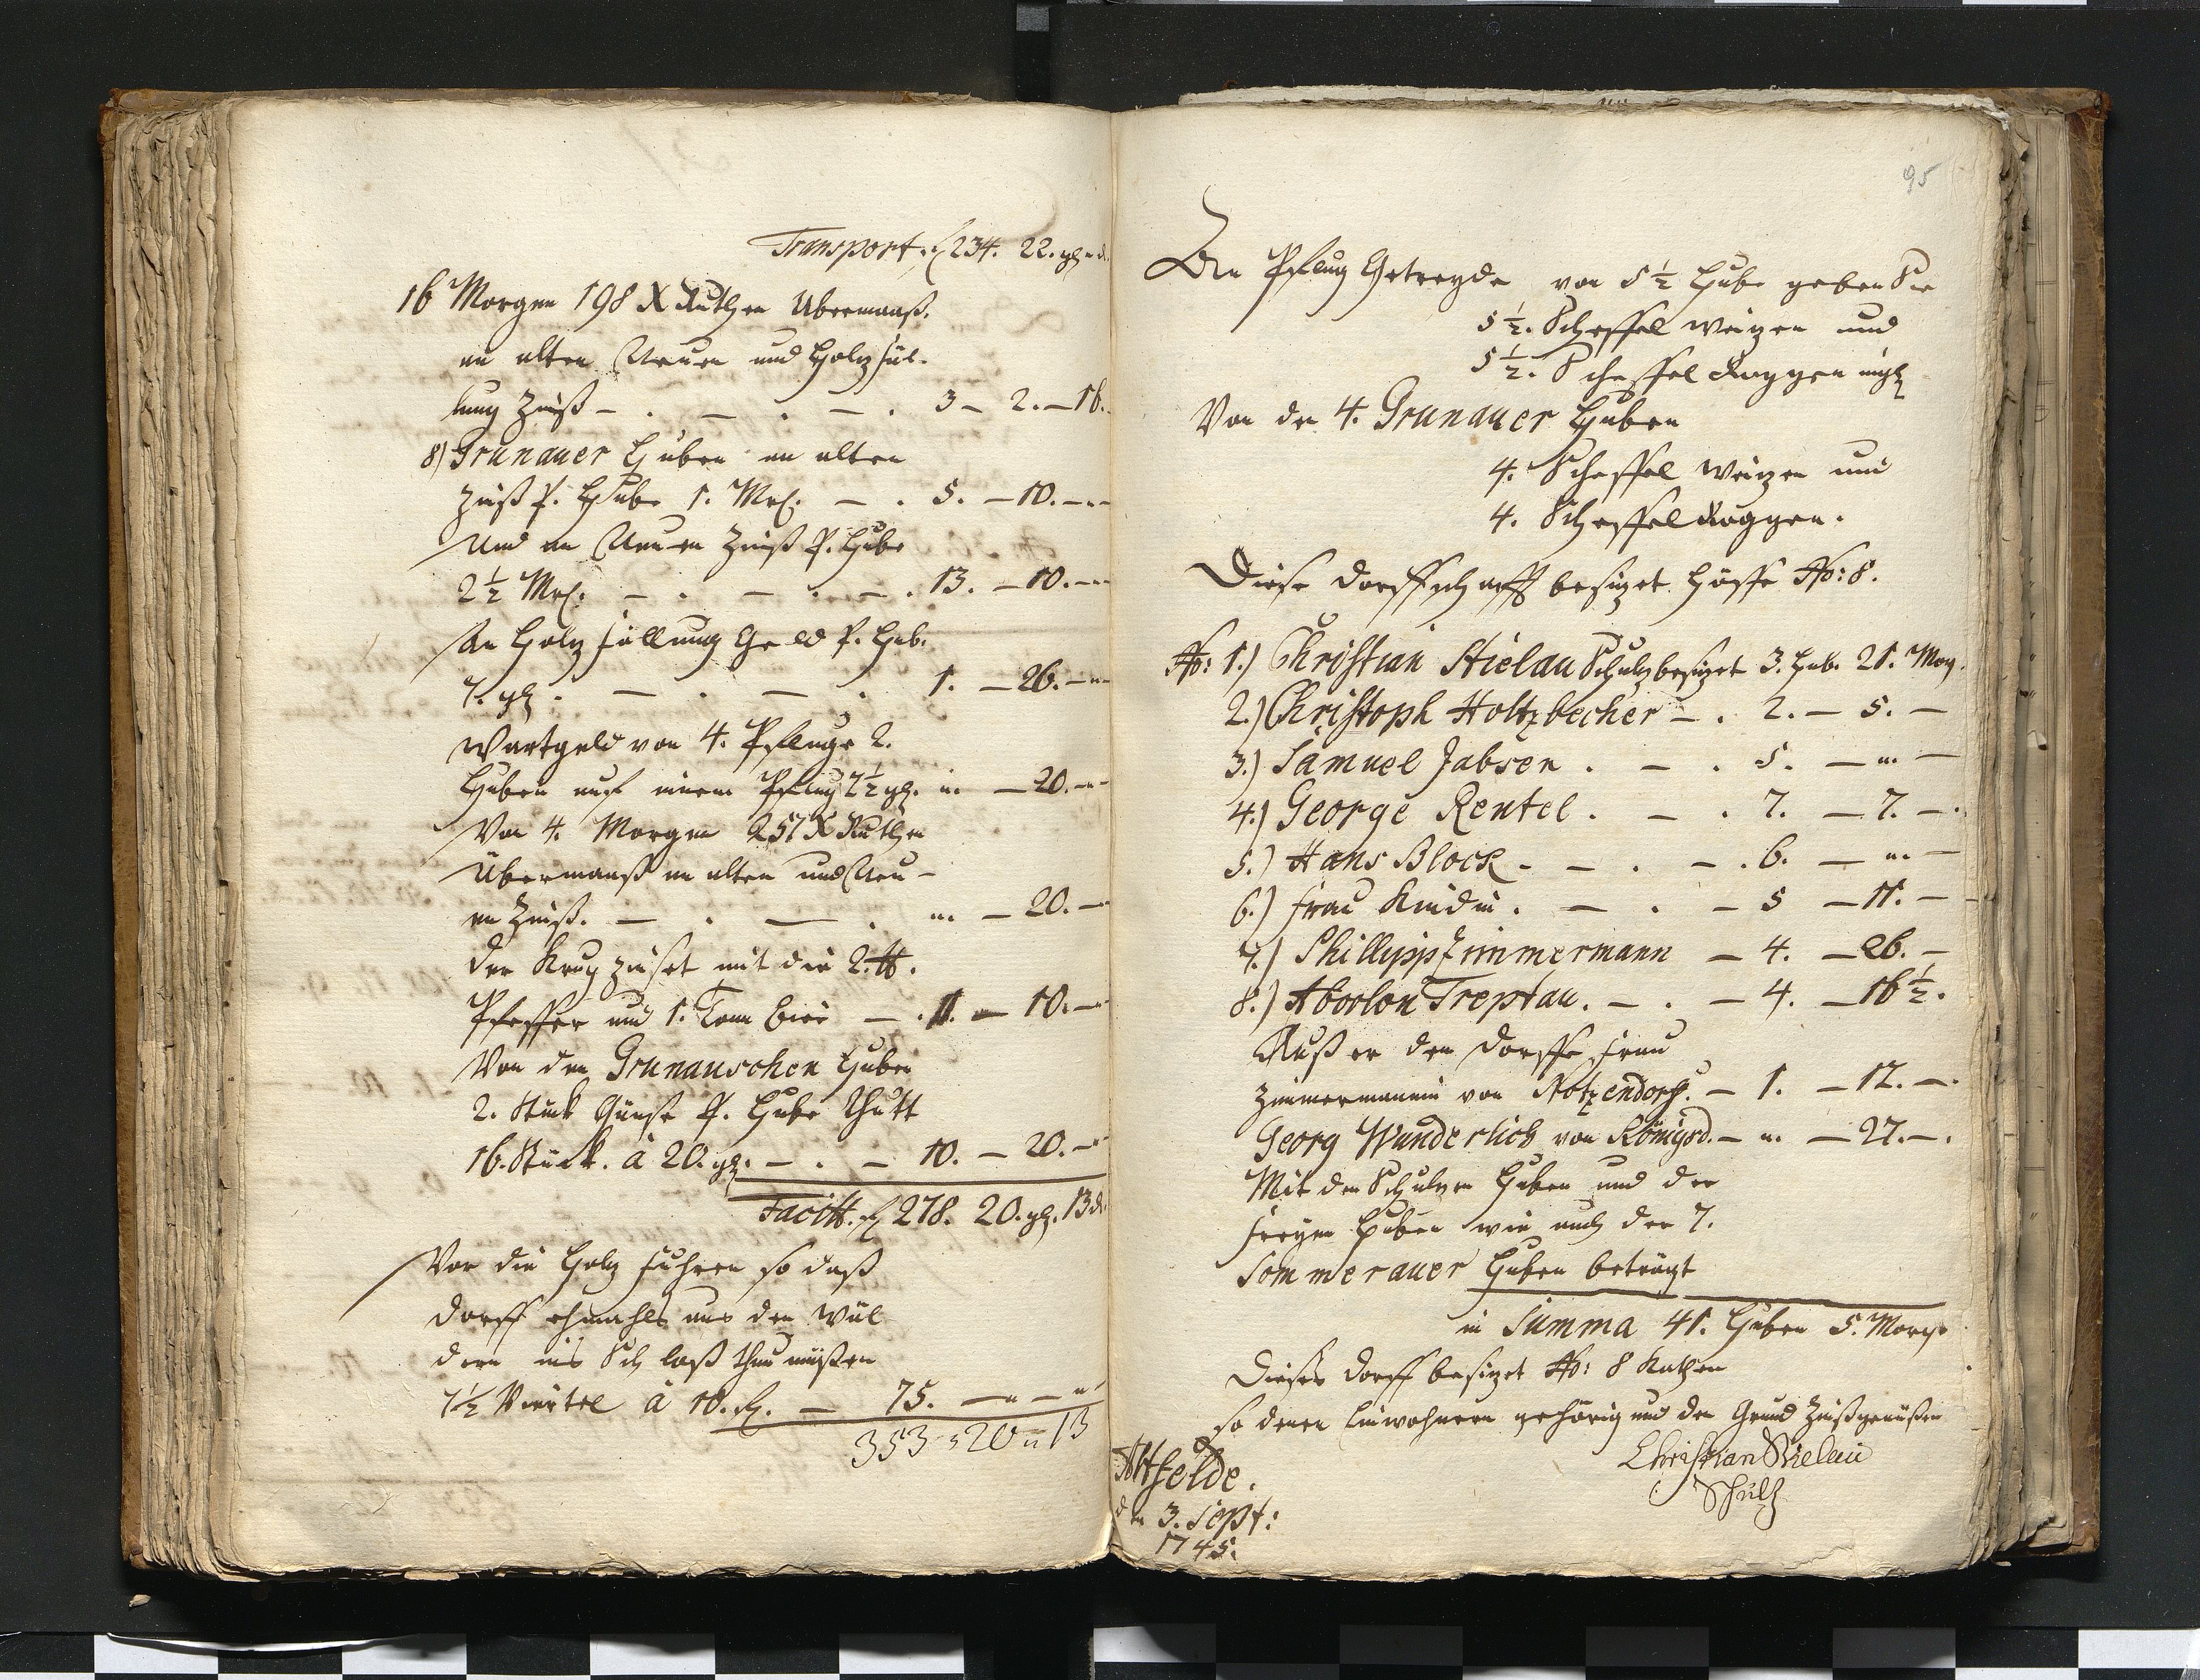 Transport. f 234. 22. gl - d.
16 Morgen 198 X Ruthen Ubermaaß.
an alten Neuen und Holz fül-
lung Zinß - . - . - . 3 - 2. - 16.
8) Grunauer Huben an alten
Zinß P. Hube 1. Mrc. - . 5. - 10. - "
Und an Neuen Zinß P. Hube
2 1/2 Mrc. - . - . - . 13. - 10. - "
An Holz füllung Geld P. Hub.
7. gl . - . - . 1. - 26. - "
Wartgeld von 4. Pfluge 2.
Huben auf einem Pflug 7 1/2 gl. " - 20. - "
Von 4. Morgen 257 X Ruthen
Übermaaß an alten und Neu-
en Zinß. - . - . " - 20. -
Der Krug zinset mit die 2. tt.
Pfeffer und 1. Tonn bier - . 11. - 10. -
Von den Grunauschen Huben
2. Stück Gänse P. Hube thutt
16. Stück. â 20. gl. - . - 10. - 20. -
Facitt. f 278. 20. gl. 13 d.
Vor die Holz fuhren so daß
Dorff ehmahls aus den Wäl
dern ins Schloß thun müßen
7 1/2 Viertel â 10. f. - 75. - " - "
353 " 20 " 13
95
An Pflug Getreyde von 5 1/2 Hube geben Sie
5 1/2. Scheffel Weizen und
5 1/2. Scheffel Roggen
Von den 4. Grunauer Huben
4. Scheffel Weizen und
4. Scheffel Roggen.
Diese Dorffschafft besizet Höffe No: 8.
No: 1.) Christian Stielau Schulz besizet 3. Hub. 21. Mog.
2.) Christoph Holtzbecher - . 2. - 5. -
3.) Samuel Jabsen . - . 5. - " -
4.) George Rentel . - . 7. - 7. - .
5.) Hans Block . - . - . 6. - " -
6.) Frau Kindin . - . - 5 - 11. -
7.) Phillipp Zimmermann - 4. - 26. -
8.) Absolon Treptau . - . - 4. - 16 1/2.
Außer den Dorffe Frau
Zimmermannin von Notzendorff. - 1. - 12. - .
Georg Wunderlich von Königsd. - " - 27. - .
Mit den Schulzen Huben und der
Freyen Huben wie auch der 7.
Sommerauer Huben beträgt
in Summa 41. Huben 5. Morg.
Dieses Dorff besizet No: 8 Kathen
so denen Einwohnern gehörig und den Grund Zinß genüßen
Christian Stielau
Schulz
Altfelde.
den 3. Sept:
1745.